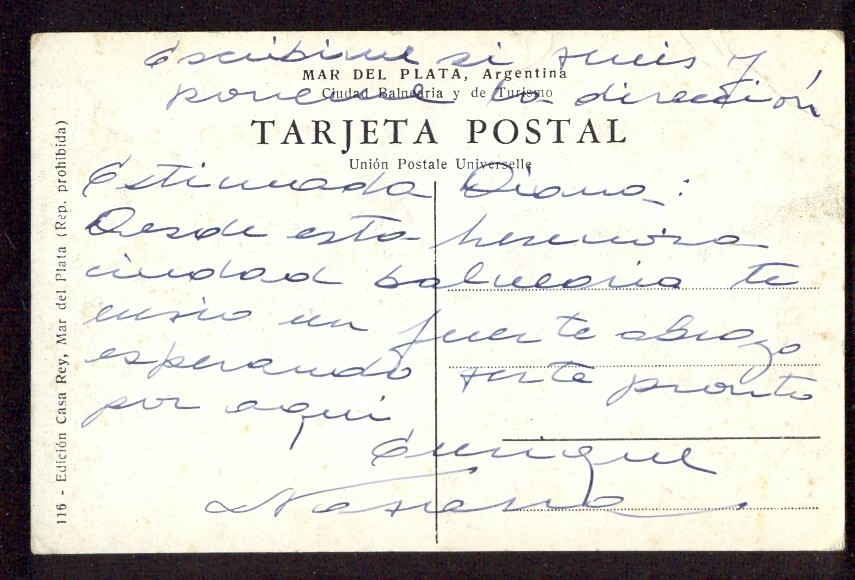 Escribime si venis y
poneme la dirección
MAR DEL PLATA, Argentina
Ciudad Balnearia y de Turismo
TARJETA POSTAL
Unión Postale Universelle
Estimada Diana:
Desde esta hermosa
ciudad balnearia te
envio un fuerte abrazo
esperando verte pronto
por aqui
Enrique
116 - Edición Casa Rey, Mar del Plata (Rep. prohibida)